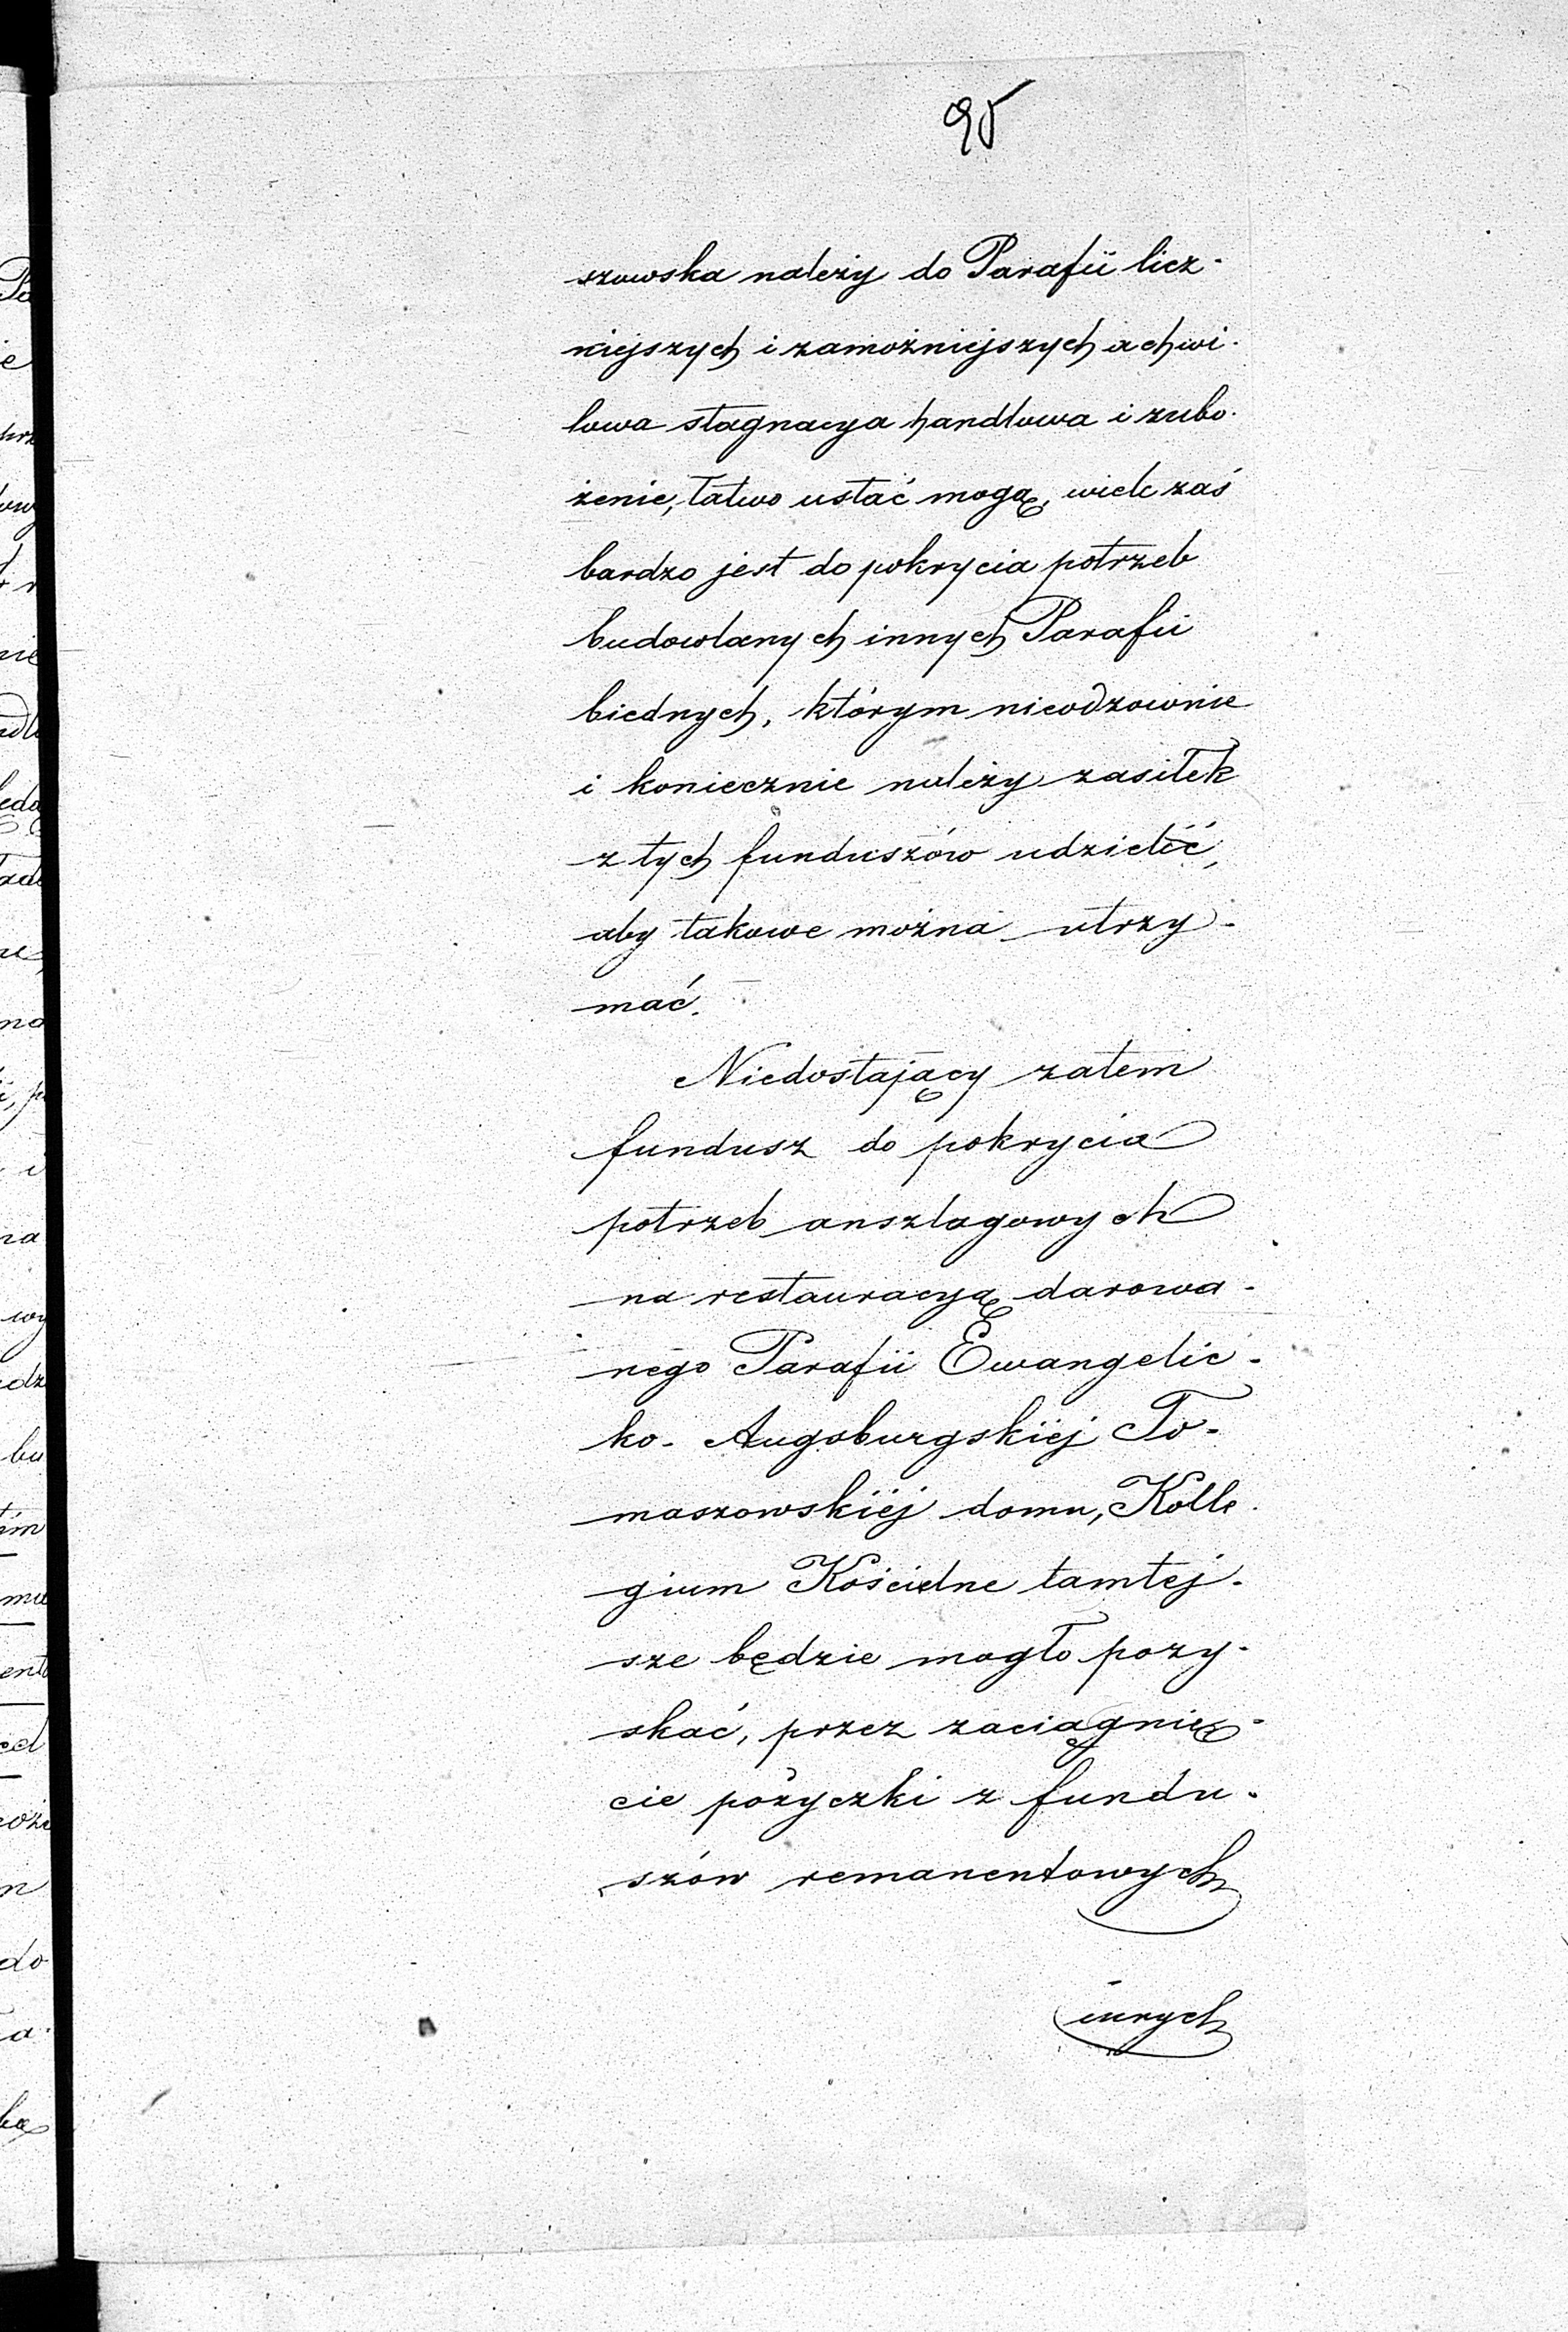 95
szowska należy do Parafii licz-
niejszych i zamożniejszych a chwi-
lowa stagnacya handlowa i zubo-
żenie, łatwo ustać mogą, wiele zaś
bardzo jest do pokrycia potrzeb
budowlanych innych Parafii
biednych, którym nieodzownie
i koniecznie należy zasiłek
z tych funduszów udzielić,
aby takowe można utrzy-
mać.
Niedostający zatem
fundusz do pokrycia
potrzeb anszlagowych
na restauracyą darowa-
nego Parafii Ewangelic-
ko-Augsburgskiéj To-
maszowskiéj domu, Kolle-
gium Kościelne tamtej-
sze będzie mogło pozy-
skać, przez zaciągnię-
cie pożyczki z fundu-
szów remanentowych
innych